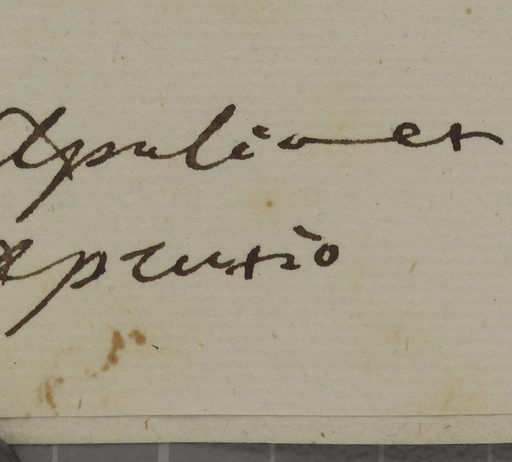 Apulia et
Aprutio